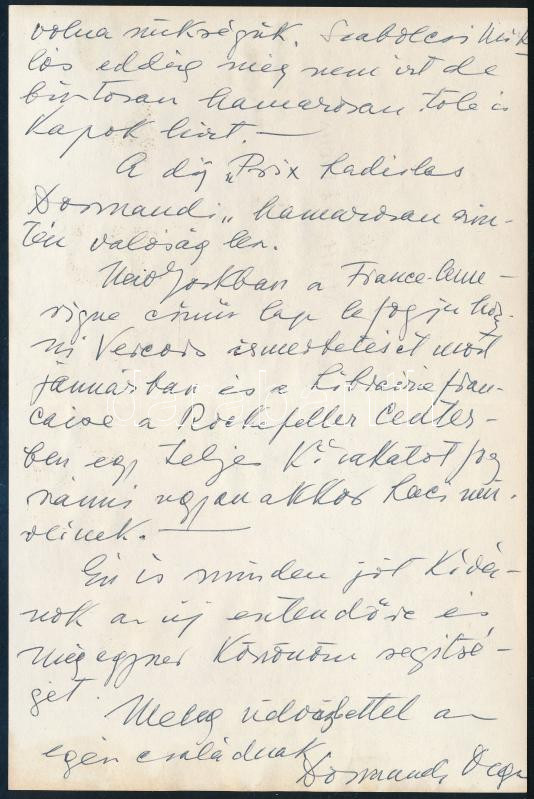 volna szükségük. Szabolcsi Mik
lós eddig még nem irt de
biztosan hamarosan tőle is
kapok hirt. —
A díj „Prix Ladislas
Dormandi„ hamarosan szin-
tén valóság lesz.
New Yorkban a France-Ame-
rique cimü lap le fogja hoz
ni Vercors ismertetését most
januárban és a Librairie fran-
caise a Rockefeller Center-
ben egy teljes kirakatot fog
szánni ugyanakkor Laci mü-
veinek. —
Én is minden jót kivá-
nok az új esztendőre és
mégegyszer köszönöm segitsé-
gét.
Meleg üdvözlettel az
egész családnak
Dormandi Olga